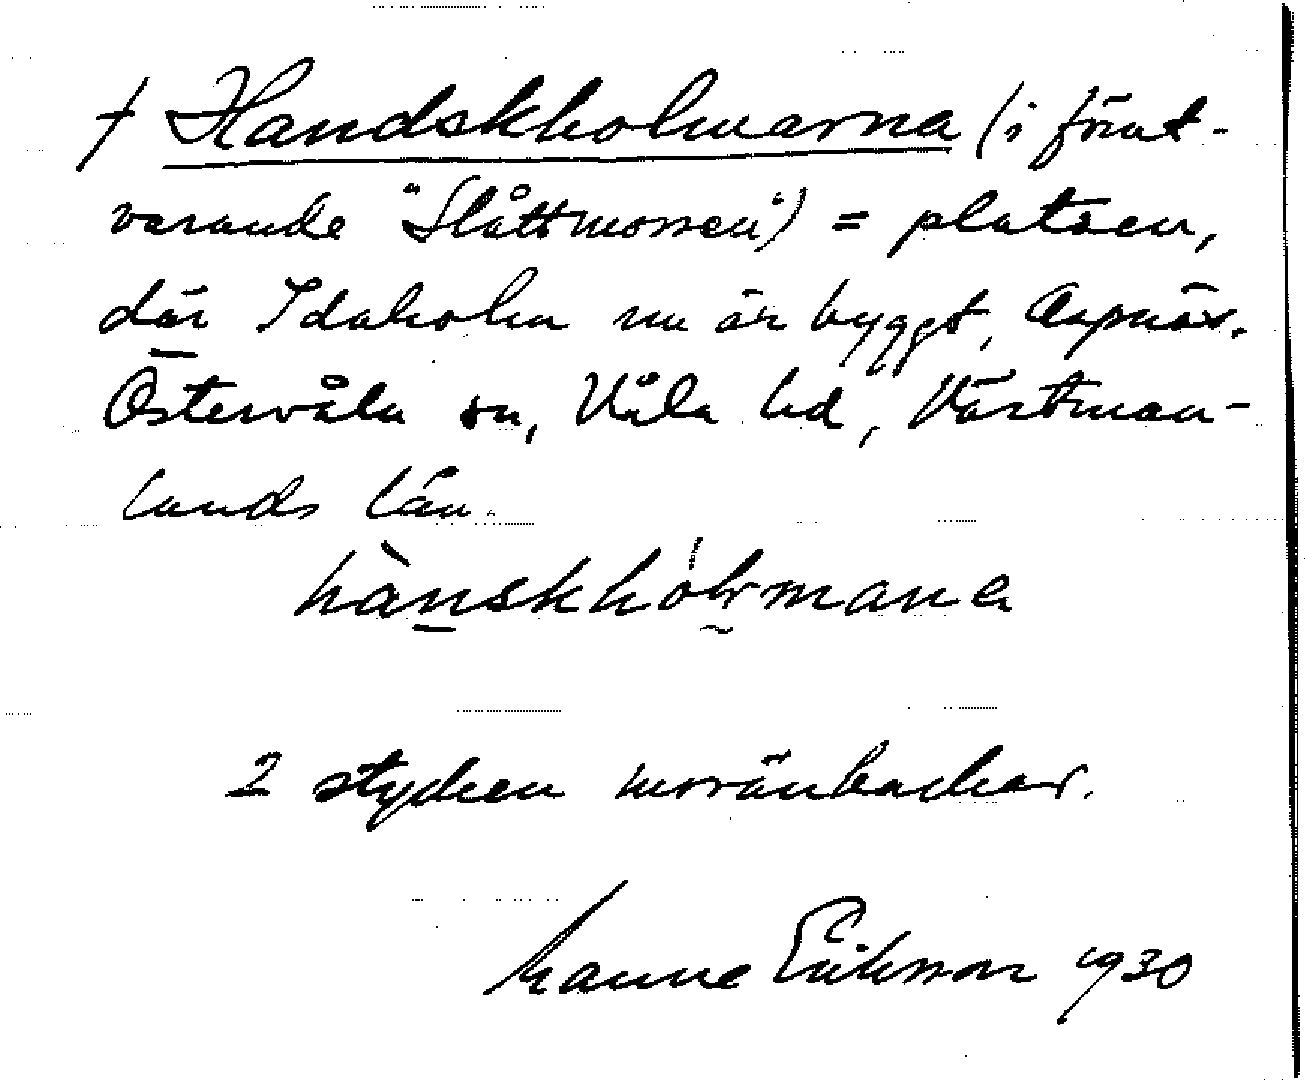 † Handskholmarna (i förut-
varande "Slåttmossen") = platsen,
där Idaholm nu är byggt, Aspnäs.
Östervåla sn, Våla hd, Västman-
lands län.
hànskhólmana
2 stycken moränbackar.
Manne Eriksson 1930